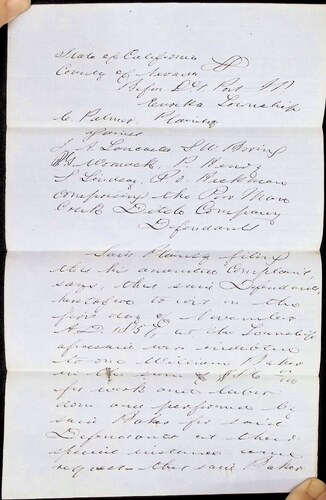 State of California
County of Nevada
Before D. S. Post J P
Eureka Township
C. Palmer Plaintiff
against
J A Lancaster S W Boring
Womack P Henry
S Lindsay
composing the Poor Man
Creek Ditch Company
Defendants
Said Plaintiff filing
this his amended Complaint
says, that said Defendants
heretofore to wit on the
first day of November
AD 185 at the Township
aforesaid were indebted
to one William Baker
in the sum of
for work and labor
done and performed by
said Baker for said
Defendants at their
special instance and
request that said Baker